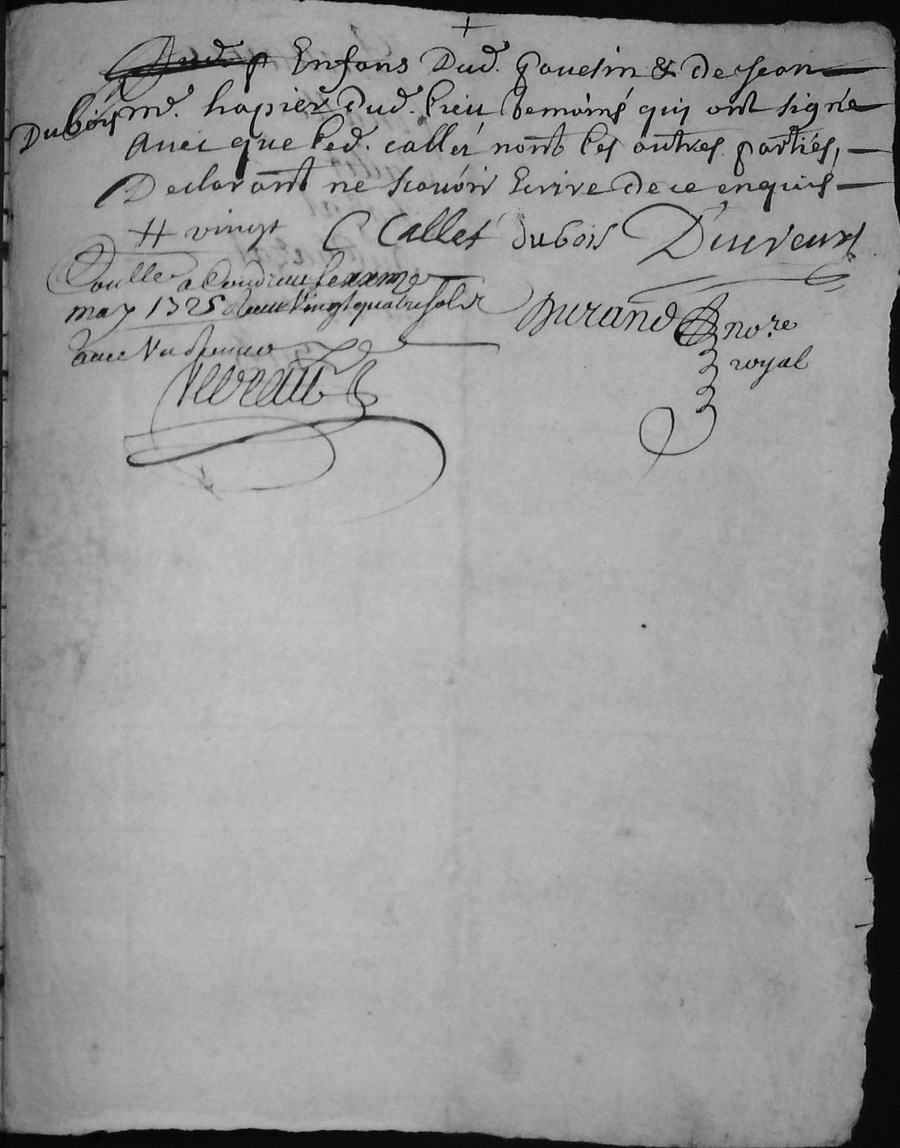 Enfans Dud. & de Jean
Dubois md. dud. lieu temoins qui ont signé
Avec que led. callet nont les autres parties,
Declarant ne scavoir Ecrire de ce enquis
# vingt C Callet dubois Duveux
Coullé a Condrieu le
may 1725 Receu Vingtquatre sols
Durand no.re
royal